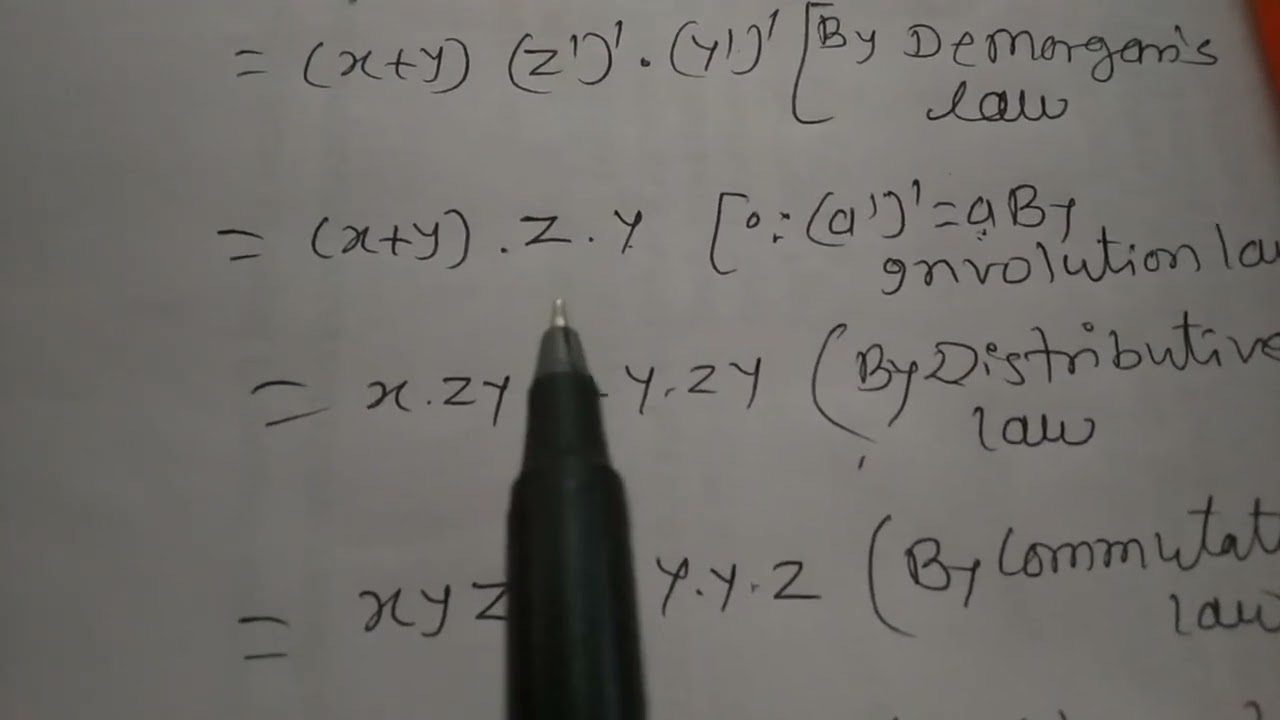 = (x+y) (z')' . (y')' [By Demorgan's
law
= (x+y) . z . y [∵ (a')' = a By
Involution la
= x . zy . y . zy (By Distributive
law
= xyz y . y . z (By Commutat
law